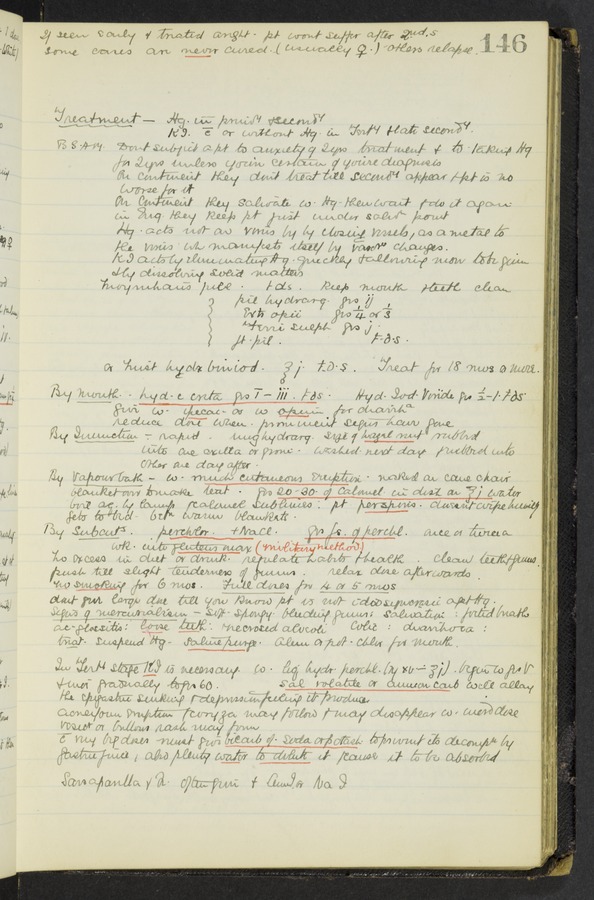 If seen early & treated aright. pt wont suffer after 2nd.s
some cases are never cured. (usually ♀.) others relapse.
146
Treatment — Hg. in primy & secondy
KI. c̄ or without Hg. in Terty & late secondy.
Dont subject a pt to anxiety of 2yrs treatment & to taking Hg
for 2yrs unless you're certain of you're diagnosis
On continent they don't treat till secondy appear & pt is no
worse for it
On Continent they salivate w. Hg. then wait & do it again
in Eng. they keep pt just under saliv point
Hg. acts not on virus by by closing vessels, as a metal to
the virus wh manifests itself by vascr changes.
KI acts by eliminating Hg. quickly & allowing more to be given
& by dissolving solid matters
pill. tds. Keep mouth & teeth clean
pil hydrarg. grs ij
Ext opii grs ¼ or ⅓
Ferri sulph grs j.
ft. pil. t.d.s.
or hydr biniod. ʒj. t.d.s. Treat for 18 mos or more.
By mouth. hyd. c creta grs i – iii. tds. Hyd. Iod. Viride grs ½–1. tds
give w. ipecac. or w opium for diarrha
reduce dose when prominent signs have gone
By Inunction – rapid. ung hydrarg. size of hazel nut rubbed
into one axilla or groin. washed next day & rubbed into
other one day after.
By Vapour bath – w. much cutaneous eruption. naked on cane chair
blanket over to make tent. grs 20-30 of Calomel in dish an ℥j water
boil aq. by lamp & calomel sublimes. pt perspires. doesnt wipe himself
gets to bed betn warm blankets.
By Subcuts. perchlor. & NaCl. grs of perchl. once or twice a
wk. into gluteus max (military method)
No excess in diet or drink. regulate habits & health. clean teeth & gums.
push till slight tenderness of gums. relax dose afterwards.
no smoking for 6 mos. Full doses for 4 or 5 mos
dont give large dose till you know pt is not idiosyncratic agst Hg.
Signs of mercurialism – spongy bleeding gums: salivation: foetid breath
ac-glossitis: loose teeth: necrosed alveoli colic: diarrhoea:
treat. suspend Hg. saline purge. Alum or pot. chlor for mouth.
In Terty stage KI is necessary w. liq hydr perchl. (ʒj). begin w grs V
& incr gradually to grs 60. sal volatile or ammon carb will allay
the epigastric sinking & depression feeling it produces
acneiform eruption & coryza may follow & may disappear w. incrd dose
roseor or bullous rash may form
c̄ very big doses must give bicarb of soda or potash to prevent its decompn by
gastric juice, also plenty water to dilute it & cause it to be absorbed
Sarsaparilla often given & Amm or Na I